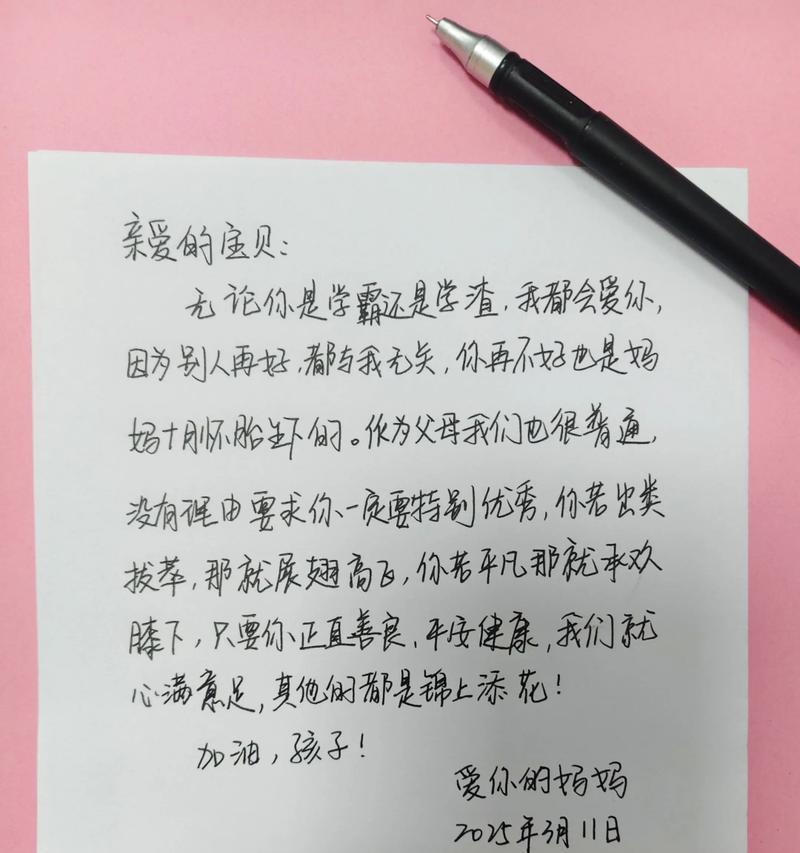 亲爱的宝贝：
无论你是学霸还是学渣，我都会爱你，
因为别人再好，都与我无关，你再不好也是妈
妈十月怀胎生下的。作为父母我们也很普通，
没有理由要求你一定要特别优秀，你若出类
拔萃，那就展翅高飞，你若平凡那就承欢
膝下，只要你正直善良、平安健康，我们就
心满意足，其他的都是锦上添花！
加油，孩子！
爱你的妈妈
2025年3月11日